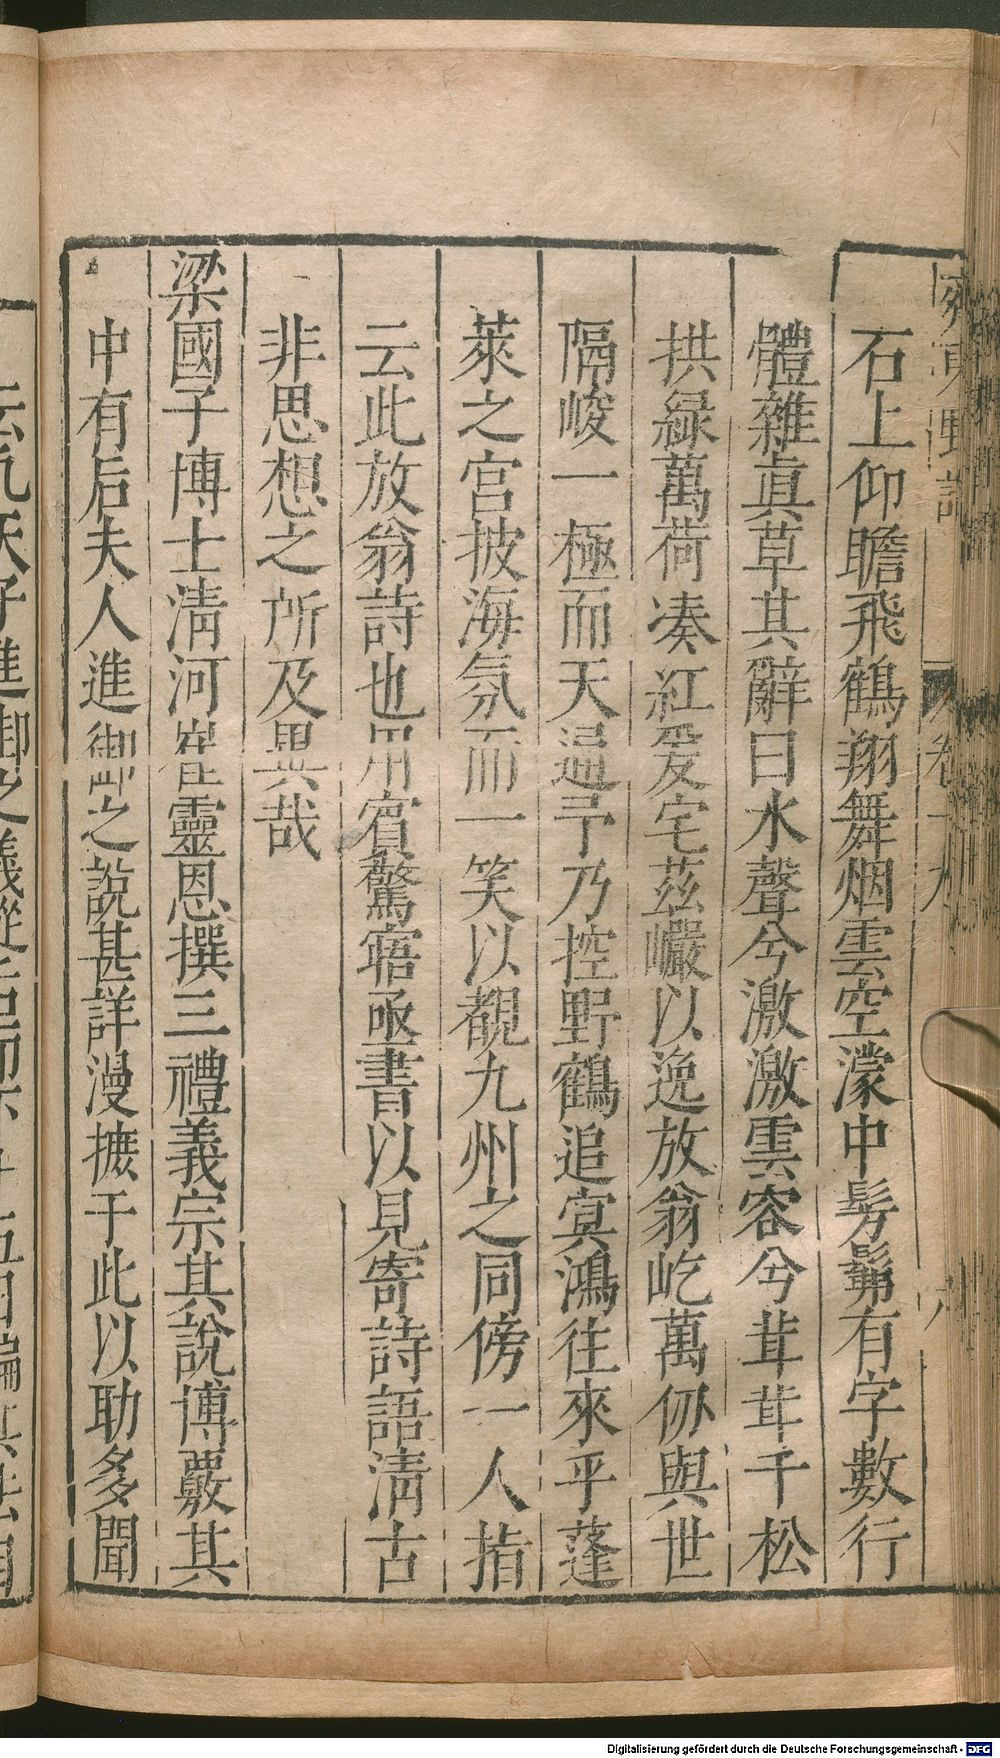 石上仰瞻飛鶴翔舞烟雲空濛中髣髴有字數行
體雜真草其辭曰水聲兮激激雲容兮茸茸千松
拱緑萬荷凑紅爰宅茲巖以逸放翁屹萬仞與世
隔峻一極而天通予乃控野鶴追冥鴻往來乎蓬
萊之宮披海氛而一笑以觀九州之同傍一人指
云此放翁詩也用賓驚寤亟書以見寄詩語清古
非思想之所及異哉
梁國子博士清河崔靈恩撰三禮義宗其說博覈其
中有后夫人進御之說甚詳漫摭于此以助多聞
Digitalisierung gefördert durch die Deutsche Forschungsgemeinschaft - DFG